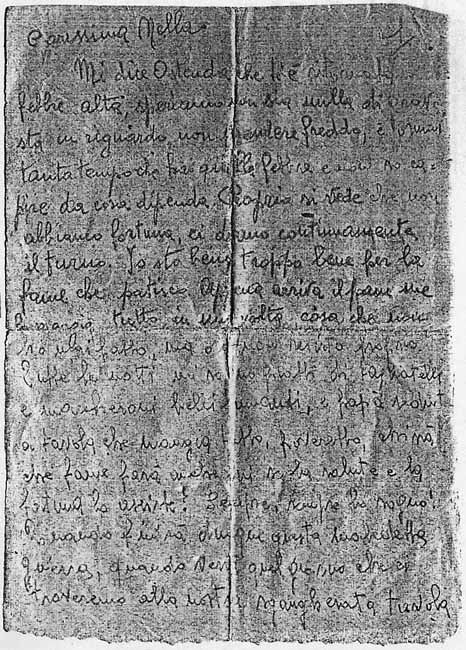 Carissima Nella 1.
Mi dice Ostenda che ti è ritornata
febbre alta, speriamo non sia nulla di grave
sta in riguardo, non prendere freddo, è ormai
tanto tempo che hai quella febbre e non so ca-
pire da cosa dipenda. Proprio si vede che non
abbiamo fortuna, ci diamo continuamente
il turno. Io sto bene, troppo bene per la
fame che patisco. Appena arriva il pane me
lo mangio tutto in una volta, cosa che non
ho mai fatto, ma
Tutte le notti mi sogno piatti di tagliatelle
e maccheroni belli, e papà
a tavola che mangia tutto, poveretto, chissà
che fame farà anche lui se la salute e la
fortuna lo assiste! Sempre, sempre lo sogno!
Quando finirà dunque questa maledetta
guerra, quando verrà quel giorno che ci
troveremo alla nostra sgangherata tavola